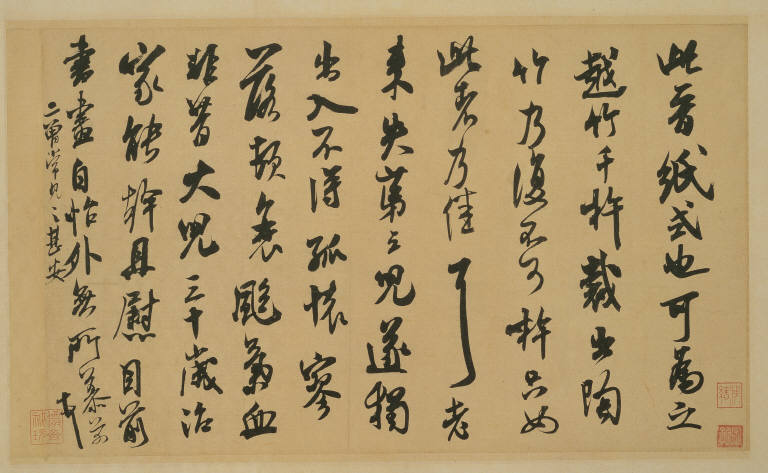 此晉紙式也可為之
越竹千杵裁出陶
竹乃復不可杵只如
此者乃佳耳老
來失第三兒遂獨
出入不得孤懷寥
落頓衰氣血
非昔大兒三十歲治
家能幹且慰目前
書畫自怡外無所慕芾
二曾常見之甚安